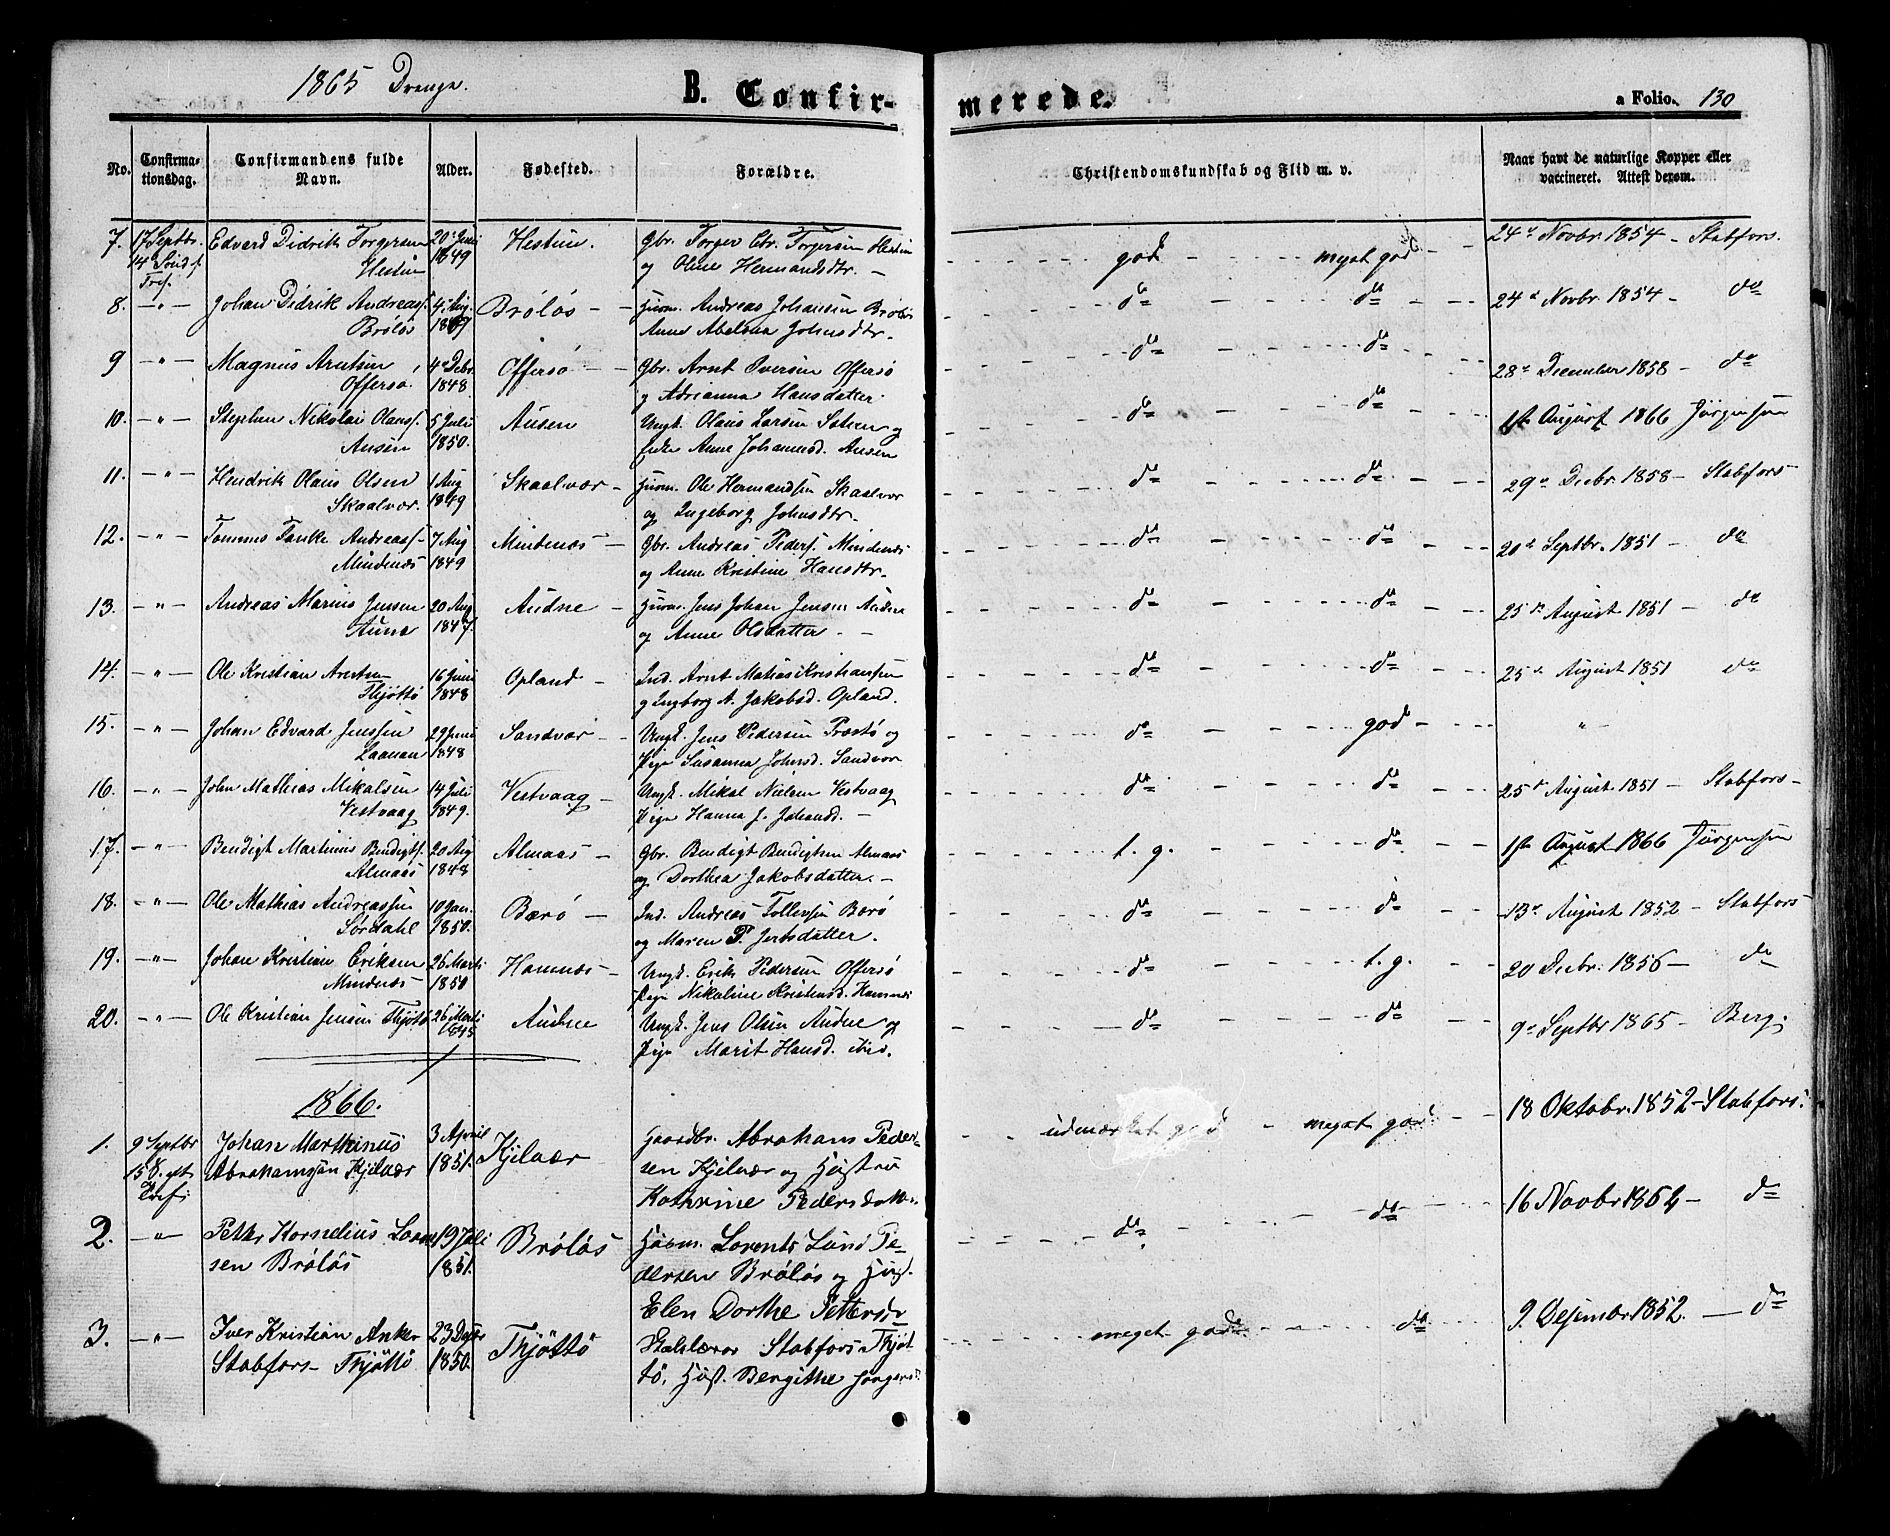 1865 Drenge.
B. Confir-
merede.
a Folio. 130
No.
Confirma-
tionsdag.
Confirmandens fulde
Navn.
Alder.
Fødested.
Forældre.
Christendomskundskab og Flid m. v.
Naar havt de naturlige Kopper eller
vaccineret. Attest derom.
7. 17 Septbr. Edvard Didrik Torgersen 20 Juni Hestun. Gbr. Torger Chr. Torgersen Hestun god - myst god 24 Novbr. 1854 - Stabfors.
14 Sønd. f. Hestun 1849 og Oline Hermandsdtr. -
Tref.
8. -"- Johan Didrik Andreass. 4 Aug. Brøløs - Huusm. Andreas Johansen Brøløs do - do 24 Novbr. 1854 - do
Brøløs 1849 Anne Abelona Johnsdtr.
9 -"- Magnus Arntsen 4 Debr. Offersø - Gbr. Arnt Iversen Offersø do - do 28 December 1858 - do
Offersø. 1848. og Adrianna Hansdatter.
10. -"- Stephen Nikolai Olauss. 5 Juli Ausen Ungk. Olaus Larsen og do - do 1ste August 1866 Jørgensen
Ausen 1850. Anne Johannesd. Ausen
11. -"- Hendrik Olaus Olsen 1 Aug Skaalvær - Huusm. Ole Hermandsen Skaalvær do - do 29 Decbr. 1858 - Stabfors -
Skaalvær. 1849 og Ingeborg Johnsdtr.
12. -"- Tommes Tanke Andreass. 7 Aug Mindenæs - Gbr. Andreas Peders. Mindenæs do - do 20 Septbr. 1851 - do
Mindenæs 1849 og Anne Kristine Hansdtr.
13. -"- Andreas Marius Jensen 20 Aug Audne - Huusm. Jens Johan Jensen Audne do - do 25 August 1851 - do
Aune 1847. og Anne Olsdatter - -
14. -"- Ole Kristian Arntsen 16 Juni Opland - Ind. Arnt Matias Kristiansen do - do 25 August 1851 do
Thjøttø 1848 og Ingborg A. Jakobsd. Opland.
15. -"- Johan Edvard Jenssen 29 Juni Sandvær - Ungk. Jens Pedersen Præstø og do - god - "
Laanan 1848 Pige Susanna Johnsd. Sandvær
16. -"- John Mathias Mikalsen 14 Juli Vestvaag - Ungk. Mikal Nielsen Vestvaag do - do 25 August 1851 - Stabfors -
Vestvaag 1849. Pige Hanna J. Johansd. -
17. -"- Bendigt Martinus Bendigts. 20 Aug Almaas - Gbr. Bendigt Bendigtsen Almaas t. g. - do 1ste August 1866 Jørgensen
Almaas 1848 og Dorthea Jakobsdatter. -
18. -"- Ole Mathias Andreassen 10 Jan. Bærø - Ind. Andreas Tollevsen Bærø do - do 13 August 1852 - Stabfors
Sørdahl 1850. og Maren P. Jertsdatter.
19. -"- Johan Kristian Eriksen 26 Marts Hamnæs - Ungk. Erik Pedersen Offersø do - t. g. 20 Decbr. 1856 - do
Mindenæs 1850 Pige Nikoline Kristensd. Hamnæs
20. -"- Ole Kristian Jensen Thjøttø 26 Marts Audne Ungk. Jens Olsen Audne og do - do 9 Septbr 1865 - Berg.
1845 Pige Marit Hansd. ibid.
1866.
1. 9 Septbr Johan Marthinus 3 April Kjelvær Gaardbr. Abrahams Peder- udmærket god - meget god 18 Oktobr. 1852 - Stabfors.
15 S. eft. Abrahamssøn Kjelvær 1851. sen Kjelvær og Hustru
Trefi Kathrine Pedersdatt.
2. -"- Peter Kornelius Loren- 19 Juli Brøløs Huusm. Lorents Lund Pe- do - do 16 Novbr 1852 - do
sen Brøløs 1851. dersen Brøløs og Hust.
Elen Dorthe Pettersdr
3. -"- Iver Kristian Anker 23 Decbr Thjøttø Skolelærer Stabfors Thjøt meget god - do 9. Desembr 1852. - do
Stabfors - Thjøttø 1850. tø, Hust. Bergithe Jørgens